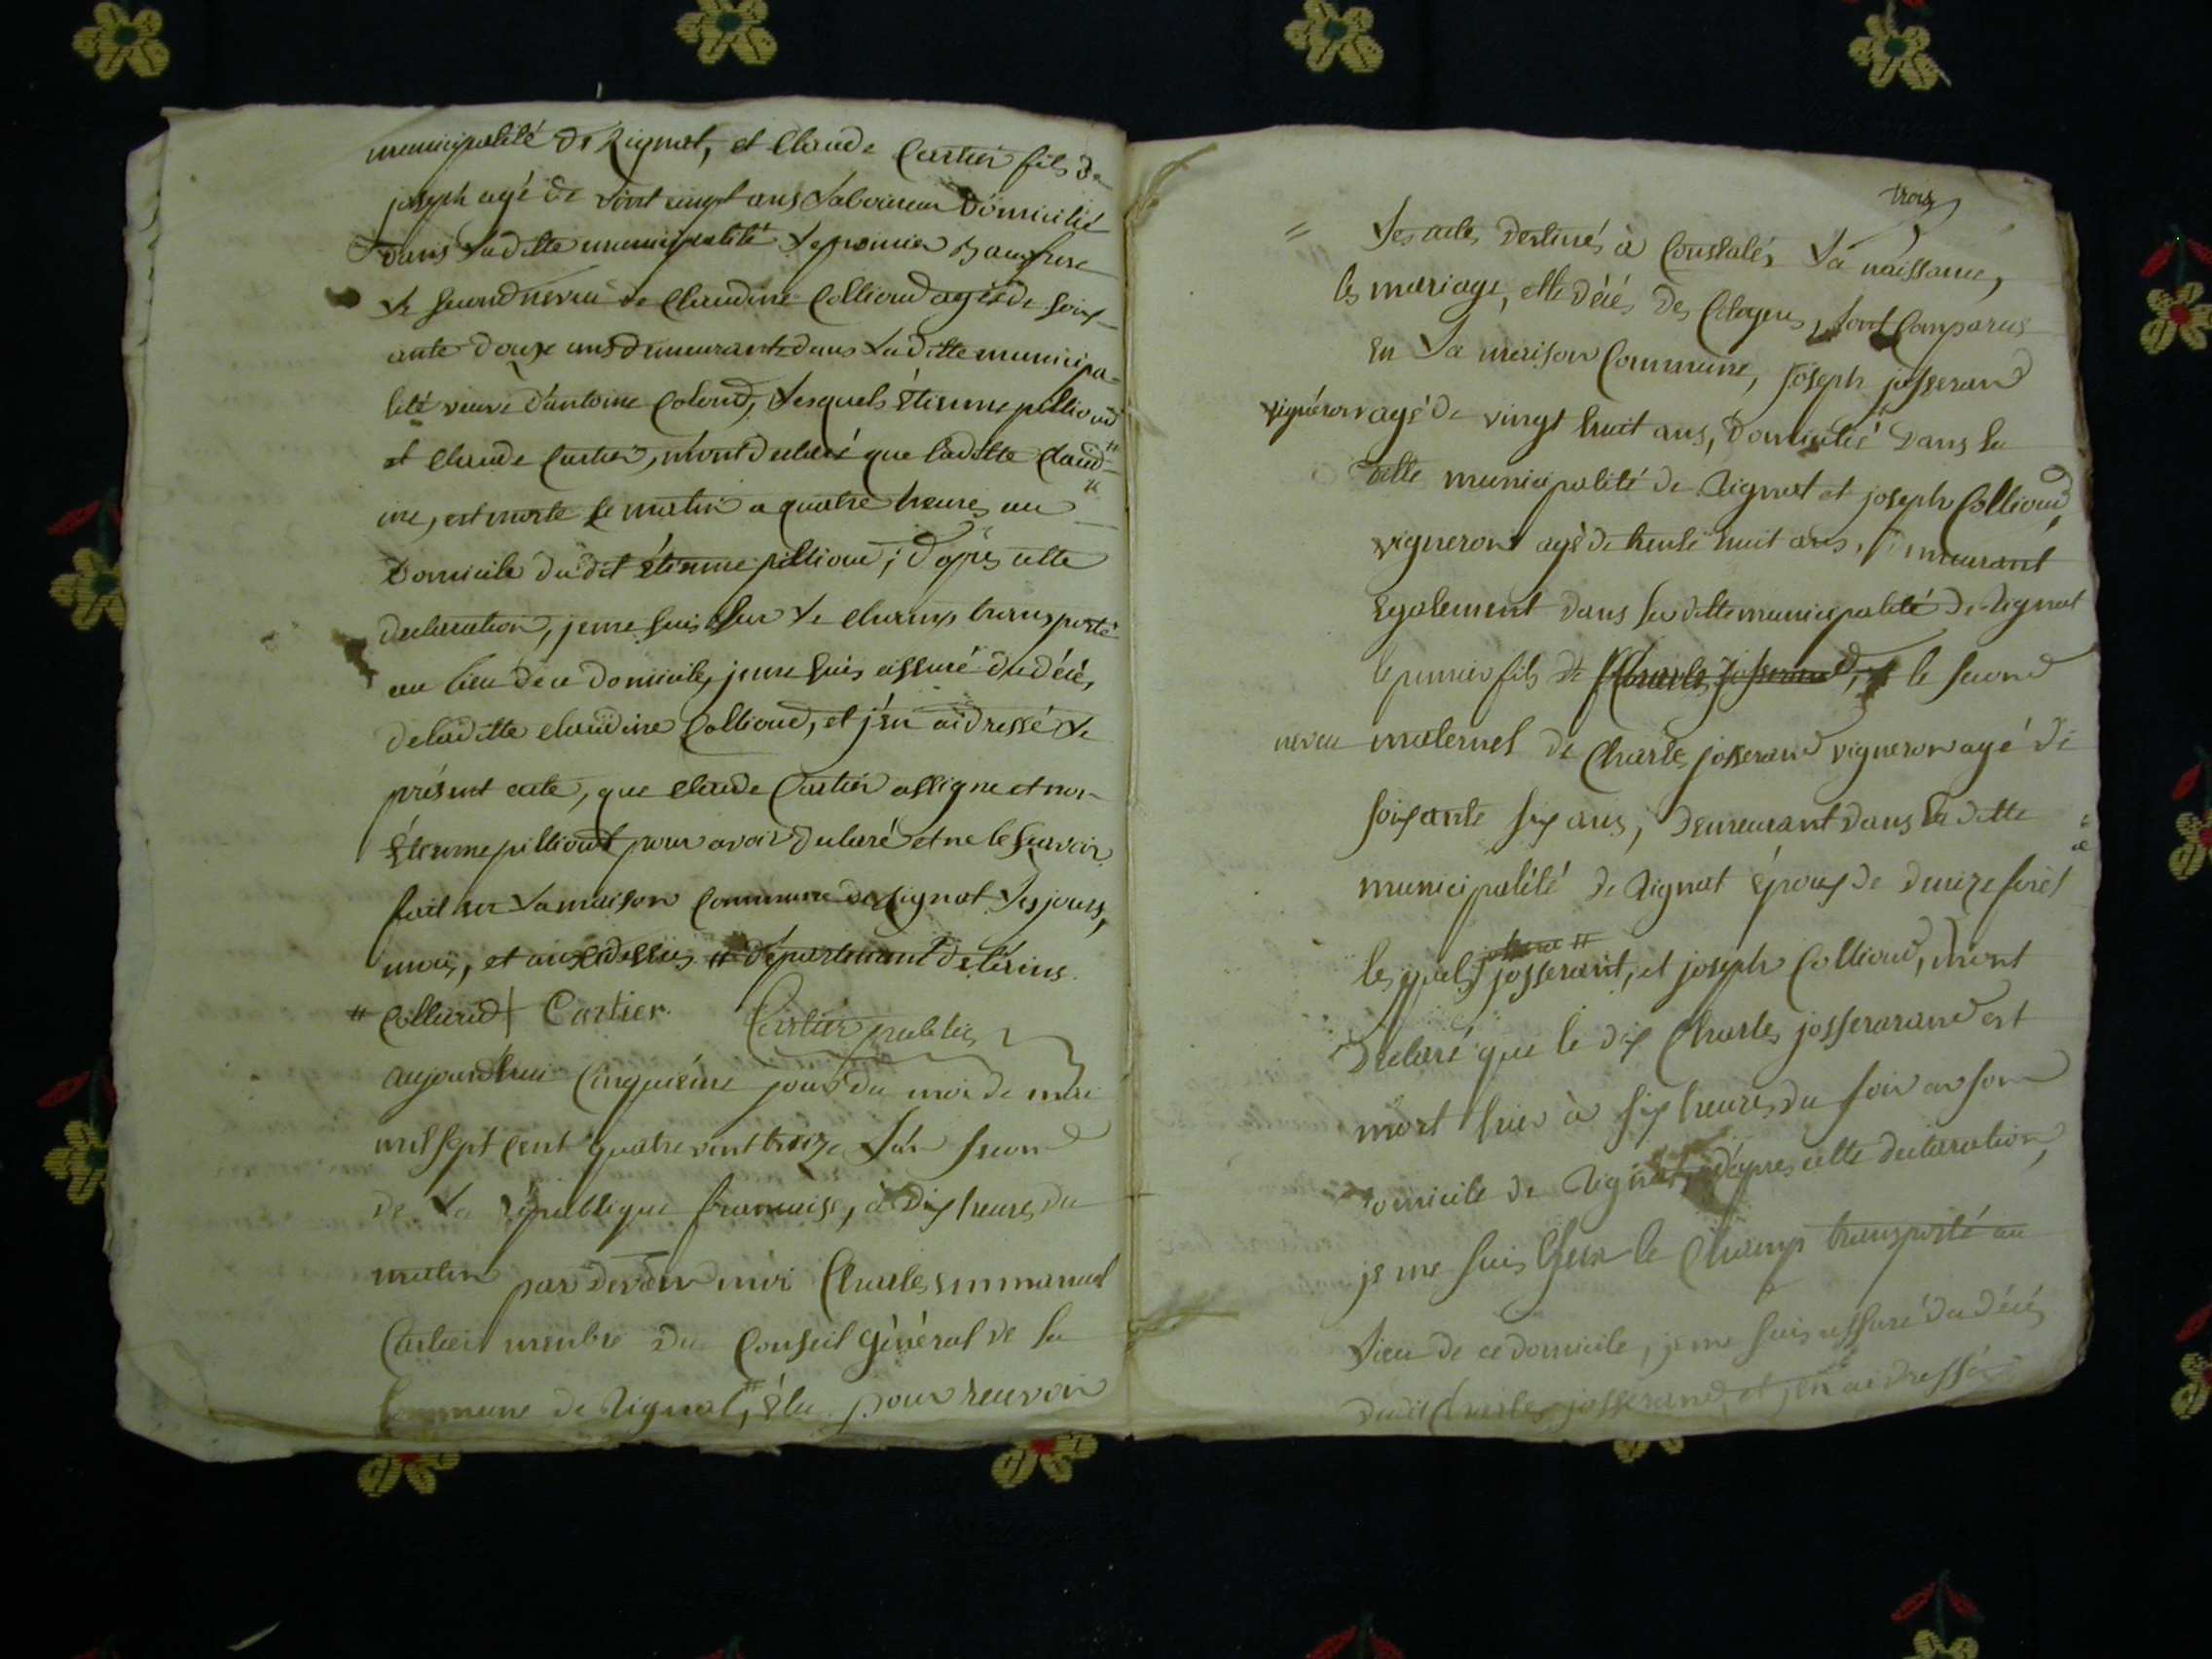 municipalité de Rignat, et Claude Cartier fils de
joseph agé de vint cinq ans Laboureur Domicilié
Dans La ditte municipalité Le premier Beaufrere
Le second neveu de Claudine Collioud agée de soix-
ante douze ans demeurante dans La ditte municipa-
lité veuve d'antoine Coloud, Lesquels Étienne pillioud
et Claude Cartier, m'ont declaré que laditte Claud-
ine, est morte ce matin a quatre heures au
Domicile du dit étienne pillioud; D'après cette
declaration, je me suis sur Le champ transporté
au lieu de ce domicile, je me suis assuré du décé,
de laditte claudine Collioud, et j'en ai dressé Le
présent acte, que claude Cartier assigne et non
Étienne pillioud pour avoir declaré et ne le sçavoir
fait en La maison Commune de Rignat Les jours,
mois, et an cidessus # département de L'ains.
# Collioud Cartier. Cartier public
aujourdhui Cinquiéme jour du moi de mai
mil sept cent quatre vint treize L'an second
de La république francaise, à dix heures du
matin par devan moi Charles emmanuel
Cartier menbre du Conseil Général de la
Commune de Rignat, élu pour recevoir
trois
= Les actes destinés à Constater La naissance,
les mariage, et le décés des Citoyens, sont Comparus
en La maison Commune, joseph josserand
vigneron agé de vingt huit ans, domicilié dans la
ditte municipalité de Rignat et joseph Collioud,
vigneron agé de trente huit ans, demeurant
egalement dans la ditte municipalité de Rignat
le premier fils de Charles josserand, le second
neveu maternel de Charles josserand vigneron agé de
soixante six ans, demeurant dans la ditte
municipalité de Rignat époux de denize foret
lesquels josserant, et joseph Collioud, m'ont
declaré que le dis Charles josserarand est
mort hier à six heures du soir en son
domicile de Rignat, d'apres cette declaration,
je me suis sur le Champ transporté au
Lieu de ce domicile, je me suis assuré du décés
dudit Charles josserand, et j'en ai dressé